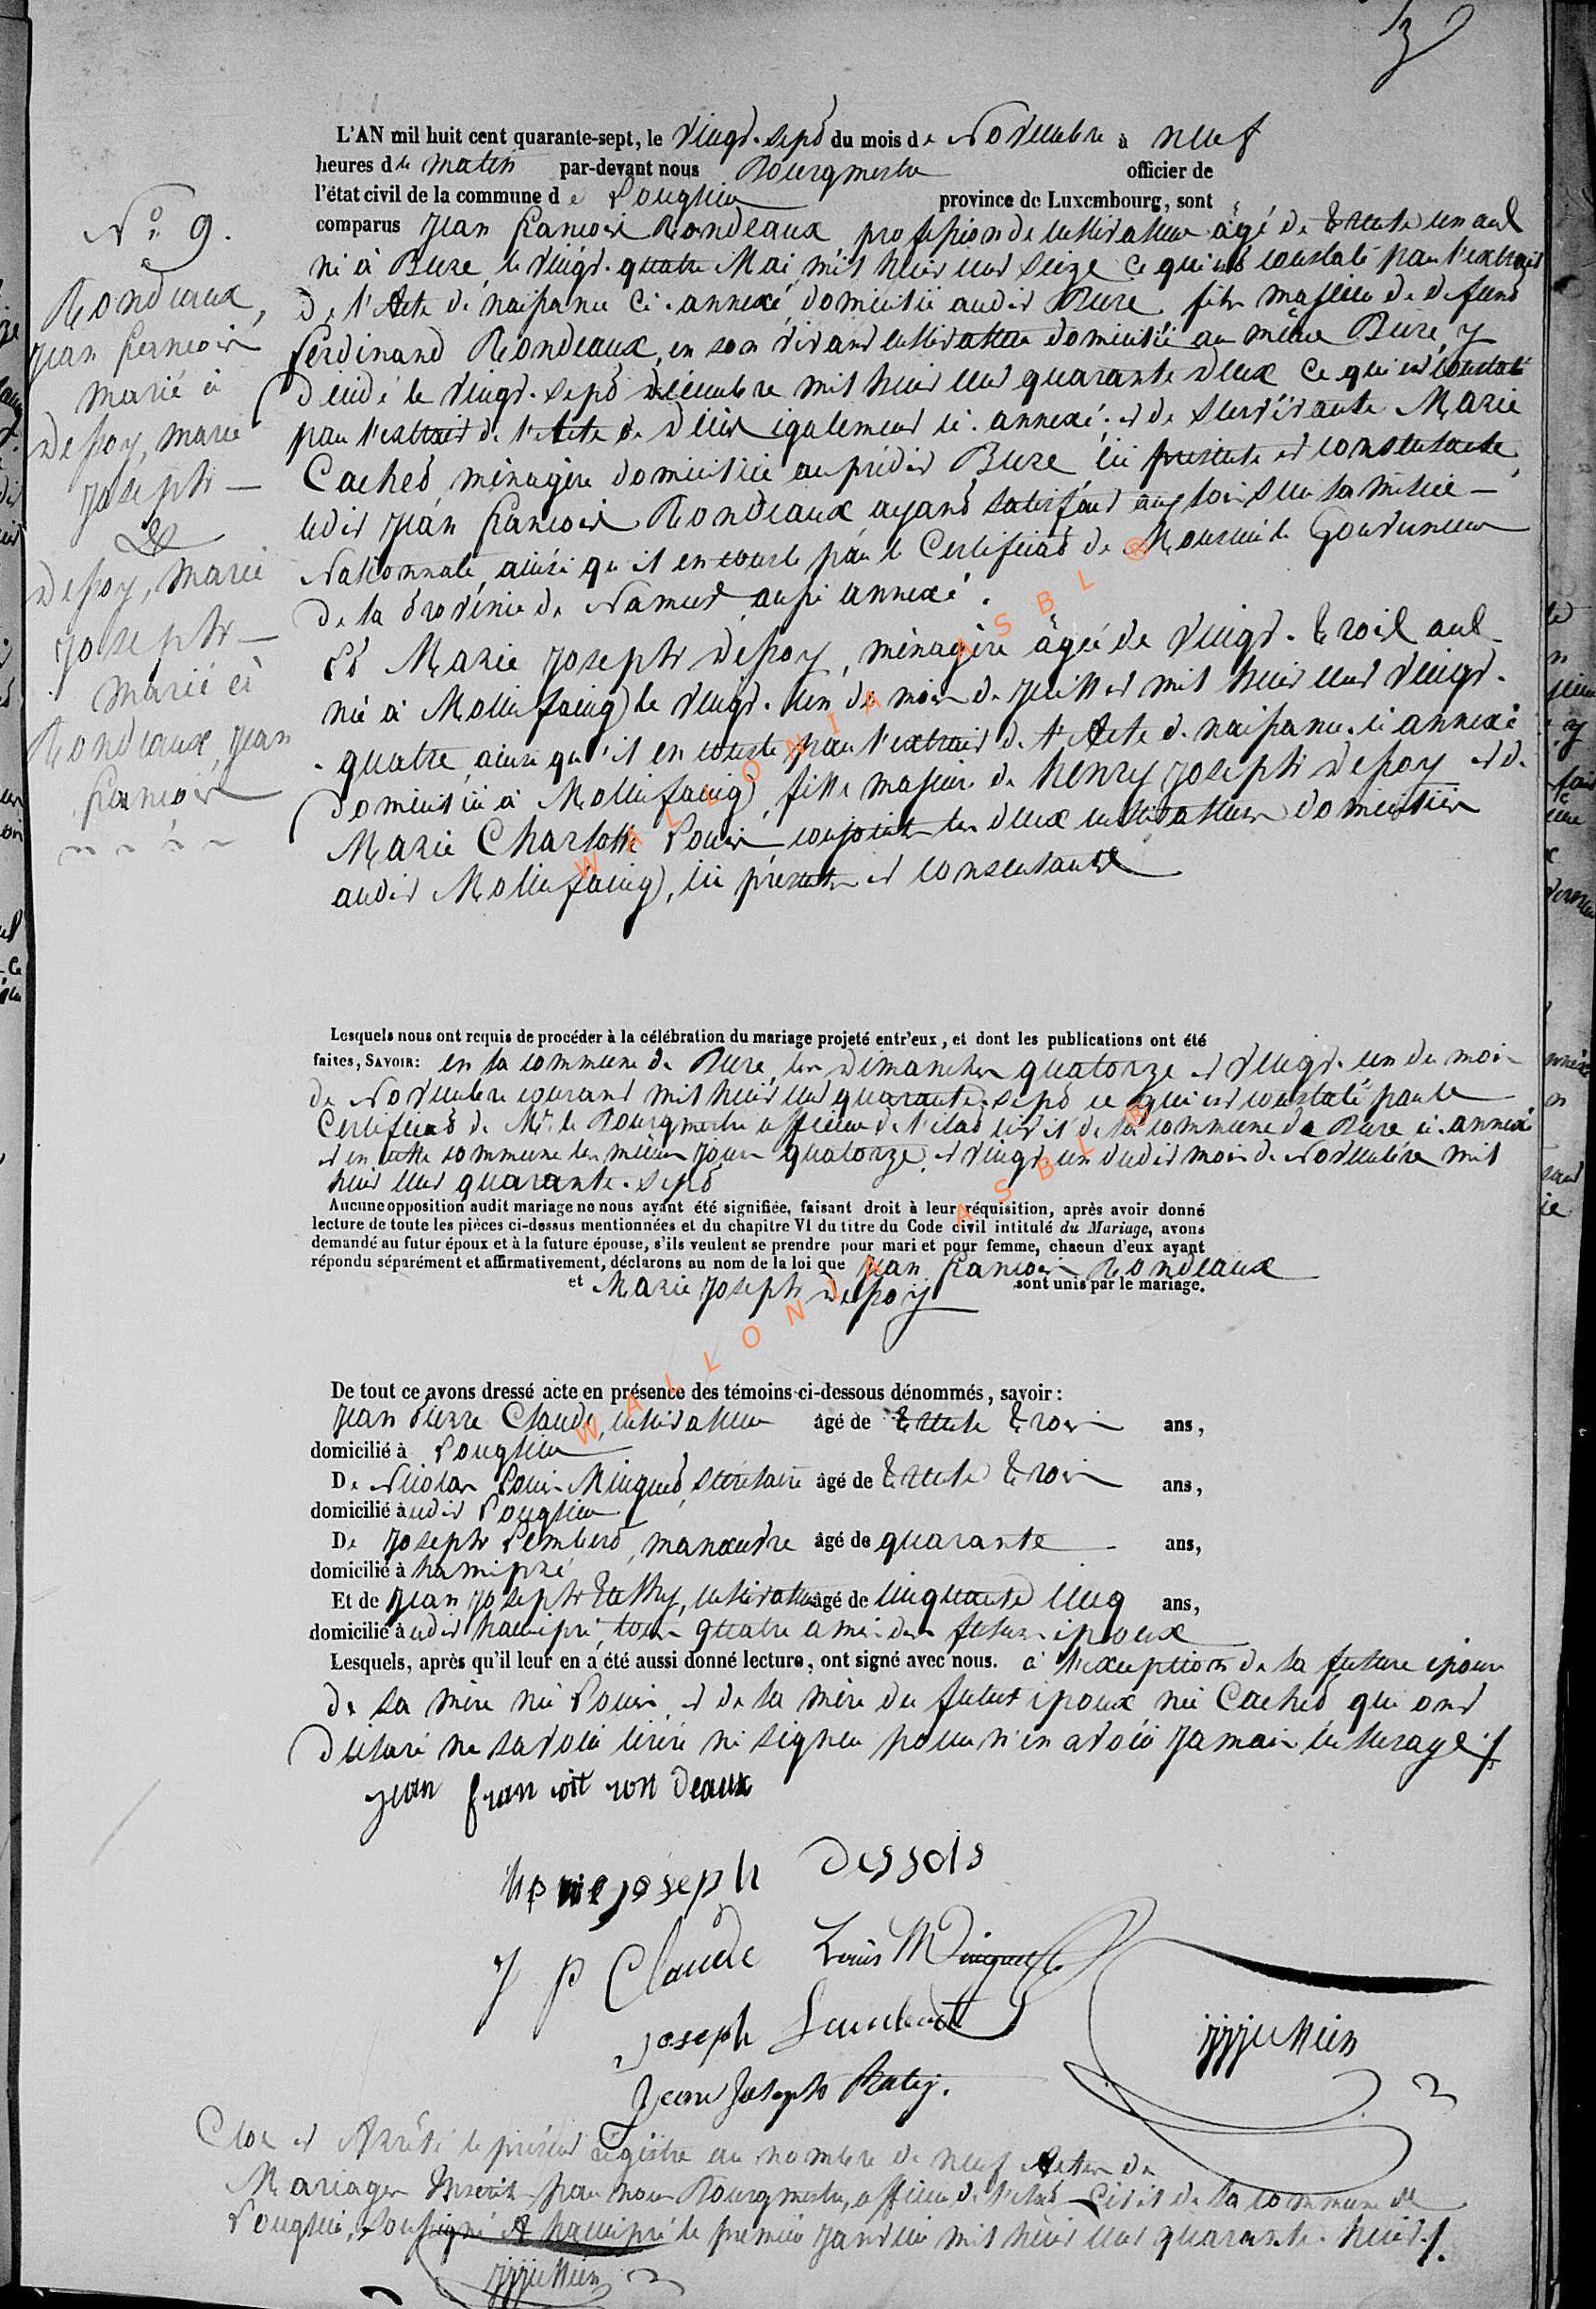 3
L'AN mil huit cent quarante-sept, le vingt-sept du mois de Novembre à neuf
heures du matin par-devant nous Bourgmestre officier de
l'état civil de la commune de Louglier province de Luxembourg, sont
comparus Jean François Rondeaux, profession de cultivateur âgé de trente un ans
né à Bure, le vingt-quatre Mai mil huit cent seize ce qui est constaté par l'extrait
de l'Acte de naissance ci-annexé, domicilié audit Bure, fils majeur de defunt
Ferdinand Rondeaux, en son vivant cultivateur domicilié au même Bure, y
décédé le vingt-sept décembre mil huit cent quarante deux ce qui est constaté
par l'extrait de l'Acte de décès également ci-annexé; et de survivante Marie
Cachet, ménagère domiciliée au prédit Bure, ici présente et consentante,
ledit Jean François Rondeaux ayant satisfait aux lois sur la milice
Nationnale, ainsi qu'il en conste par le Certificat de Monsieur le Gouverneur
de la Province de Namur aussi annexé.
Et Marie Joseph Dessoy, ménagère âgée de vingt-trois ans
née à Mollinfaing le vingt-un du mois de Juillet mil huit cent vingt-
quatre, ainsi qu'il en conste par l'extrait de l'Acte de naissance ci annexé
domiciliée à Mollinfaing, fille majeure de henry Joseph Dessoy et de
Marie Charlotte Louis, conjoints les deux cultivateurs domiciliés
audit Mollinfaing, ici présents et consentants
N° 9.
Rondeaux,
Jean François
marié à
Dessoy, marie
Joseph —
&
Dessoy, marie
Joseph —
marié à
Rondeaux, Jean
François
Lesquels nous ont requis de procéder à la célébration du mariage projeté entr'eux, et dont les publications ont été
faites, SAVOIR: en la commune de Bure, les Dimanches quatorze et vingt-un du mois
de Novembre courant mil huit cent quarante-sept ce qui est constaté par le
Certificat de Mr. le Bourgmestre officier de l'état civil de la commune de Bure ci-annexé
et en cette commune les mêmes jours quatorze et vingt un dudit mois de Novembre mil
huit cent quarante-sept
Aucune opposition audit mariage ne nous ayant été signifiée, faisant droit à leur réquisition, après avoir donné
lecture de toute les pièces ci-dessus mentionnées et du chapitre VI du titre du Code civil intitulé du Mariage, avons
demandé au futur époux et à la future épouse, s'ils veulent se prendre pour mari et pour femme, chacun d'eux ayant
répondu séparément et affirmativement, déclarons au nom de la loi que Jean François Rondeaux
et Marie Joseph Dessoy sont unis par le mariage.
De tout ce avons dressé acte en présence des témoins ci-dessous dénommés, savoir:
Jean Pierre Claude, cultivateur âgé de trente trois ans,
domicilié à Louglier
De Nicolas Louis Minguet, sécrétaire âgé de trente trois ans,
domicilié à udit Louglier
De Joseph Lembert, manœuvre âgé de quarante ans,
domicilié à hamipré
Et de Jean Joseph, cultivateur âgé de cinquante cinq ans,
domicilié à udit hamipré, tous quatre amis des futurs époux
Lesquels, après qu'il leur en a été aussi donné lecture, ont signé avec nous. à l'exception de la future épouse
de sa mère née Louis, et de la mère du futur époux née Cachet, qui ont
déclaré ne savoir écrire ni signer pour n'en avoir jamais eu l'usage./.
jean fran çoit ron deaux
joseph Dessois
J P Claude Louis Minguet
Joseph
Jean Joseph
JJJullien
Clos et Arrêté le présent régistre au nombre de neuf Actes de
Mariages Inscrits par nous Bourgmestre, officier de l'état Civil de la commune de
Louglier, soussigné A hamipré le premier Janvier mil huit cent quarante-huit./.
JJJullien
WALLONIA ASBL ®
WALLONIA ASBL ®